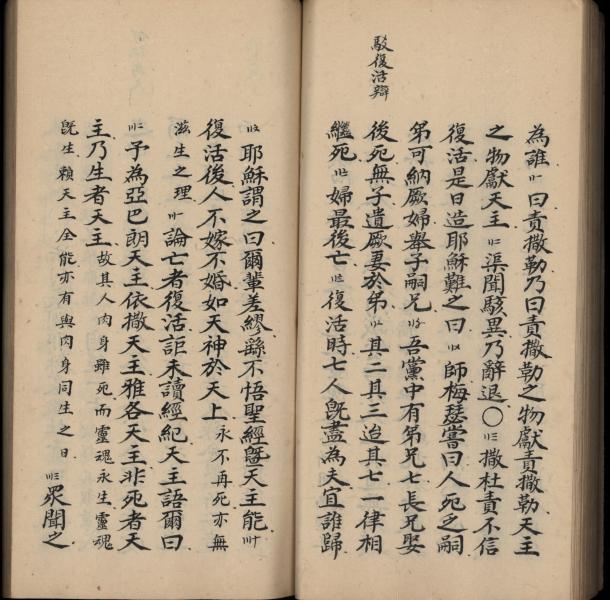 駁復活辯
為誰曰責撒勒乃曰責撒勒之物獻責撒勒天主
之物獻天主渠聞駭異乃辭退〇撒杜責不信
復活是日造耶穌難之曰師梅瑟嘗曰人死乏嗣
弟可納厥婦舉子嗣兄吾黨中有弟兄七長兄娶
後死無子遺厥妻於弟其二其三迨其七一律相
繼死婦最後亡復活時七人旣盡為夫宜誰歸
耶穌謂之曰爾輩差繆繇不悟聖經曁天主能
復活後人不嫁不婚如天神於天上永不再死亦無
滋生之理論亡者復活詎未讀經紀天主語爾曰
予為亞巴朗天主依撒天主雅各天主非死者天
主乃生者天主故其人肉身雖死而靈魂永生靈魂
旣生賴天主全能亦有與肉身同生之日眾聞之